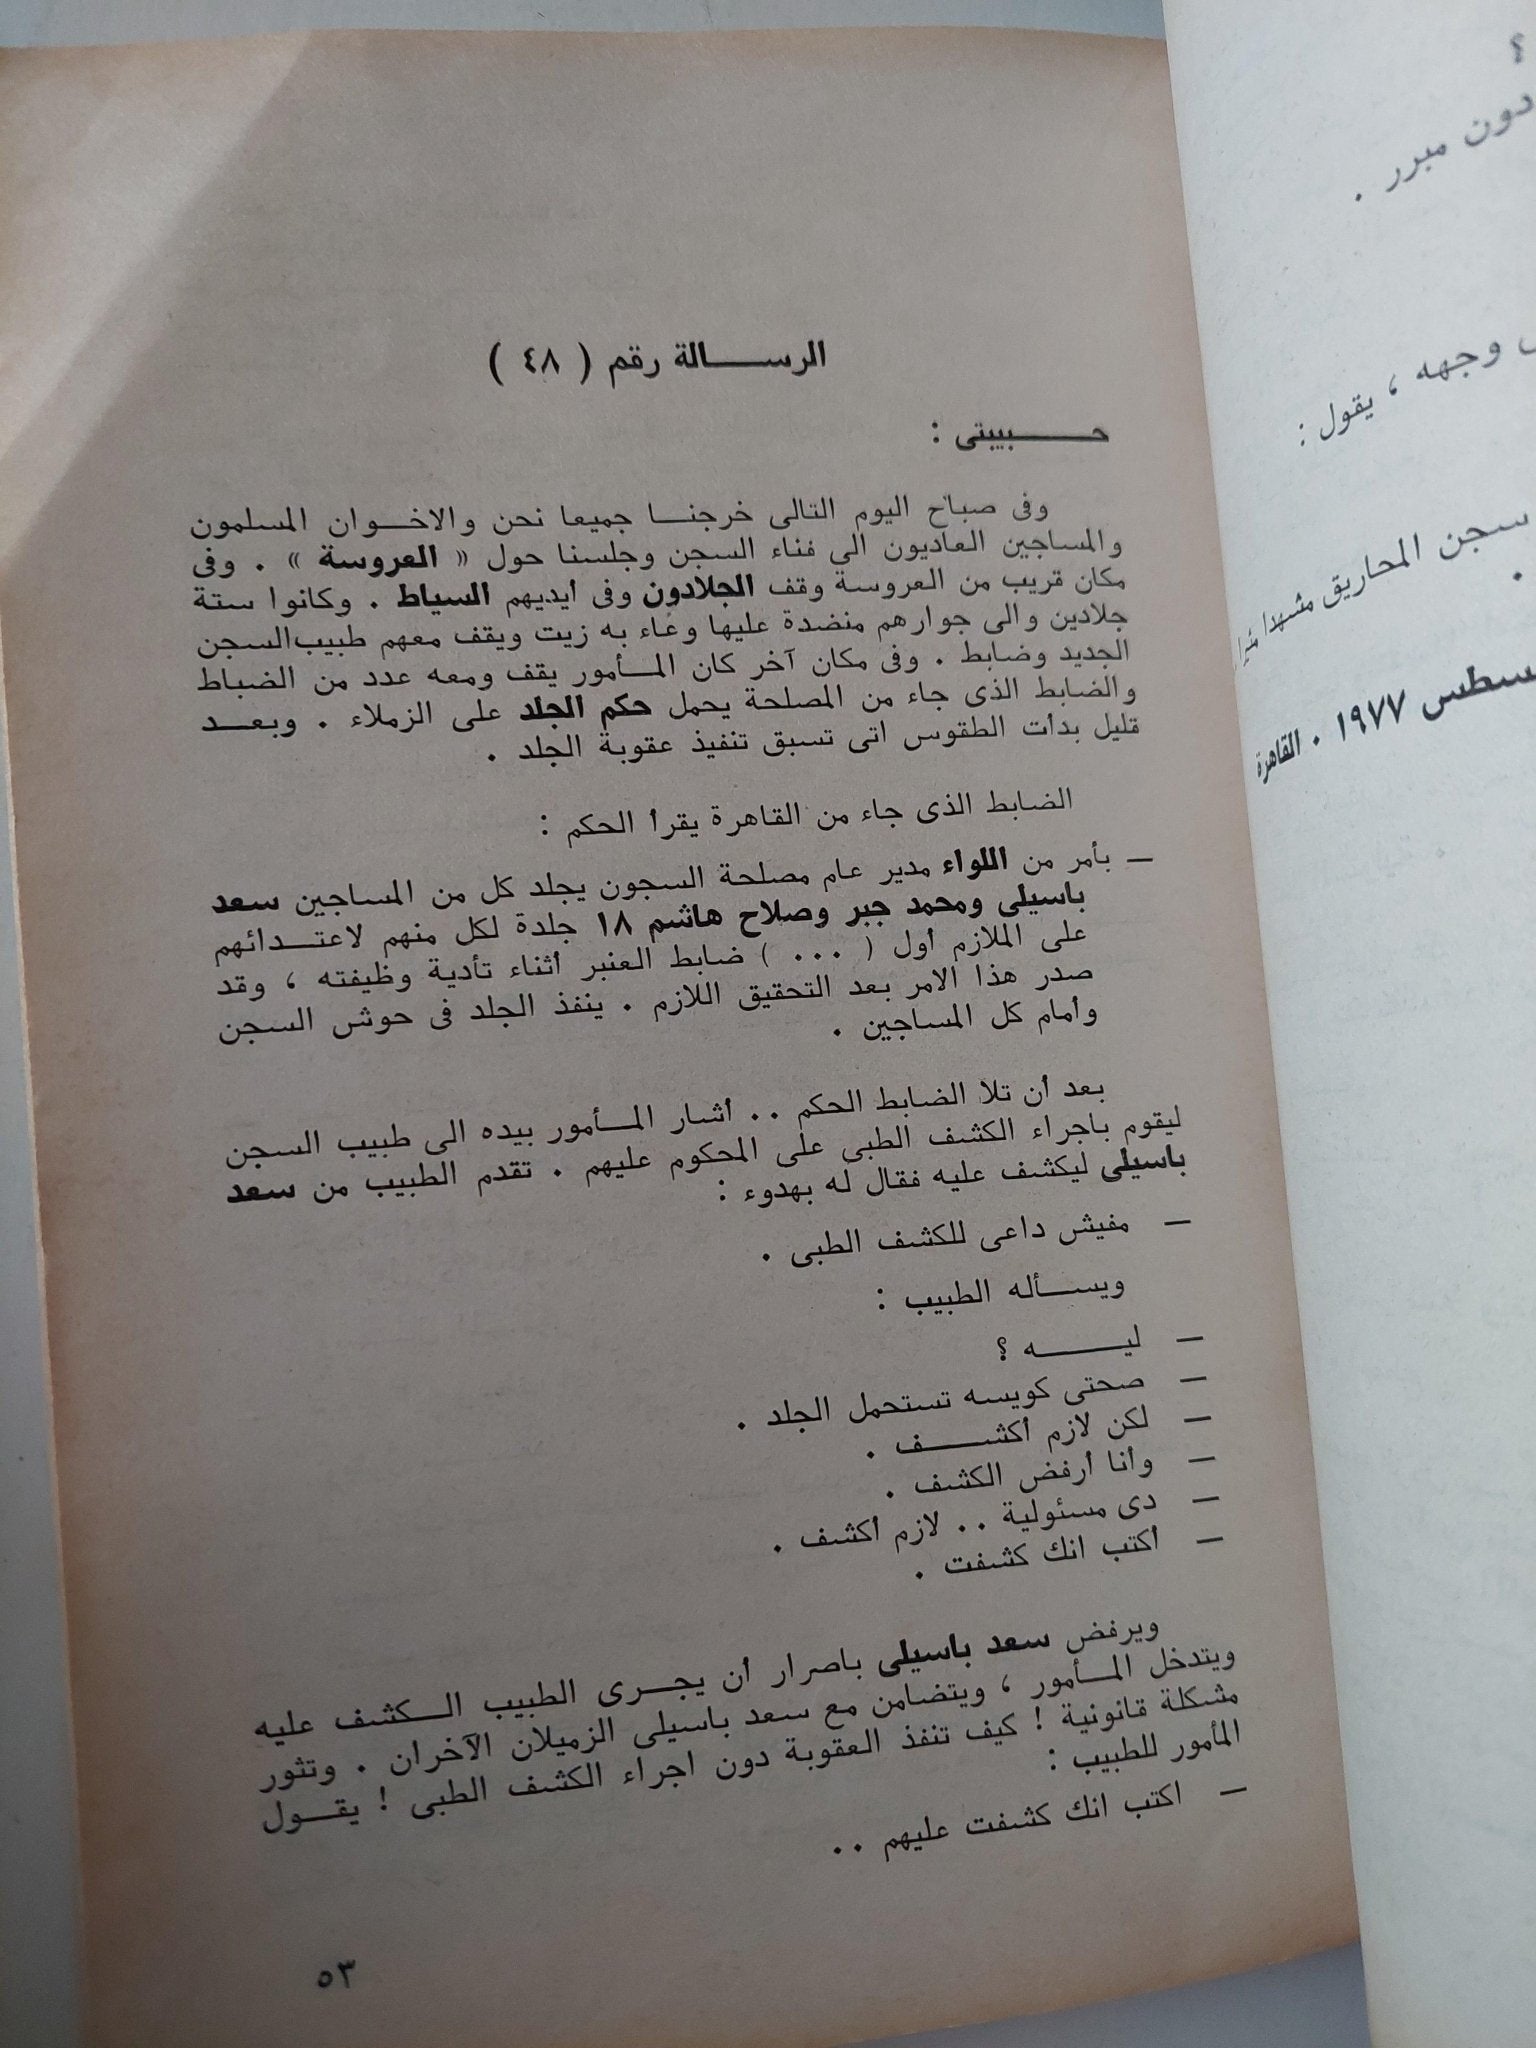 الرسالة رقم ( ٤٨ )
حبيبتى :
وفى صباح اليوم التالى خرجنا جميعا نحن والاخوان المسلمون
والمساجين العاديون الى فناء السجن وجلسنا حول « العروسة » . وفى
مكان قريب من العروسة وقف الجلادون وفى أيديهم السياط . وكانوا ستة
جلادين والى جوارهم منضدة عليها وعاء به زيت ويقف معهم طبيب السجن
الجديد وضابط . وفى مكان آخر كان المأمور يقف ومعه عدد من الضباط
والضابط الذى جاء من المصلحة يحمل حكم الجلد على الزملاء . وبعد
قليل بدأت الطقوس اتى تسبق تنفيذ عقوبة الجلد .
الضابط الذى جاء من القاهرة يقرأ الحكم :
— بأمر من اللواء مدير عام مصلحة السجون يجلد كل من المساجين سعد
باسيلى ومحمد جبر وصلاح هاشم ١٨ جلدة لكل منهم لاعتدائهم
على الملازم أول ( ٠٠٠ ) ضابط العنبر أثناء تأدية وظيفته ، وقد
صدر هذا الامر بعد التحقيق اللازم . ينفذ الجلد فى حوش السجن
وأمام كل المساجين .
بعد أن تلا الضابط الحكم .. أشار المأمور بيده الى طبيب السجن
ليقوم باجراء الكشف الطبى على المحكوم عليهم . تقدم الطبيب من سعد
باسيلى ليكشف عليه فقال له بهدوء :
— مفيش داعى للكشف الطبى .
ويسأله الطبيب :
— ليه ؟
— صحتى كويسه تستحمل الجلد .
— لكن لازم أكشف .
— وأنا أرفض الكشف .
— دى مسئولية .. لازم أكشف .
— أكتب انك كشفت .
ويرفض سعد باسيلى باصرار أن يجرى الطبيب الكشف عليه
ويتدخل المأمور ، ويتضامن مع سعد باسيلى الزميلان الآخران . وتثور
مشكلة قانونية ! كيف تنفذ العقوبة دون اجراء الكشف الطبى ! يقول
المأمور للطبيب :
— اكتب انك كشفت عليهم ..
٥٣
؟
دون مبرر .
وجهه ، يقول :
سجن المحاريق مشهدا
.
١٩٧٧ . القاهرة